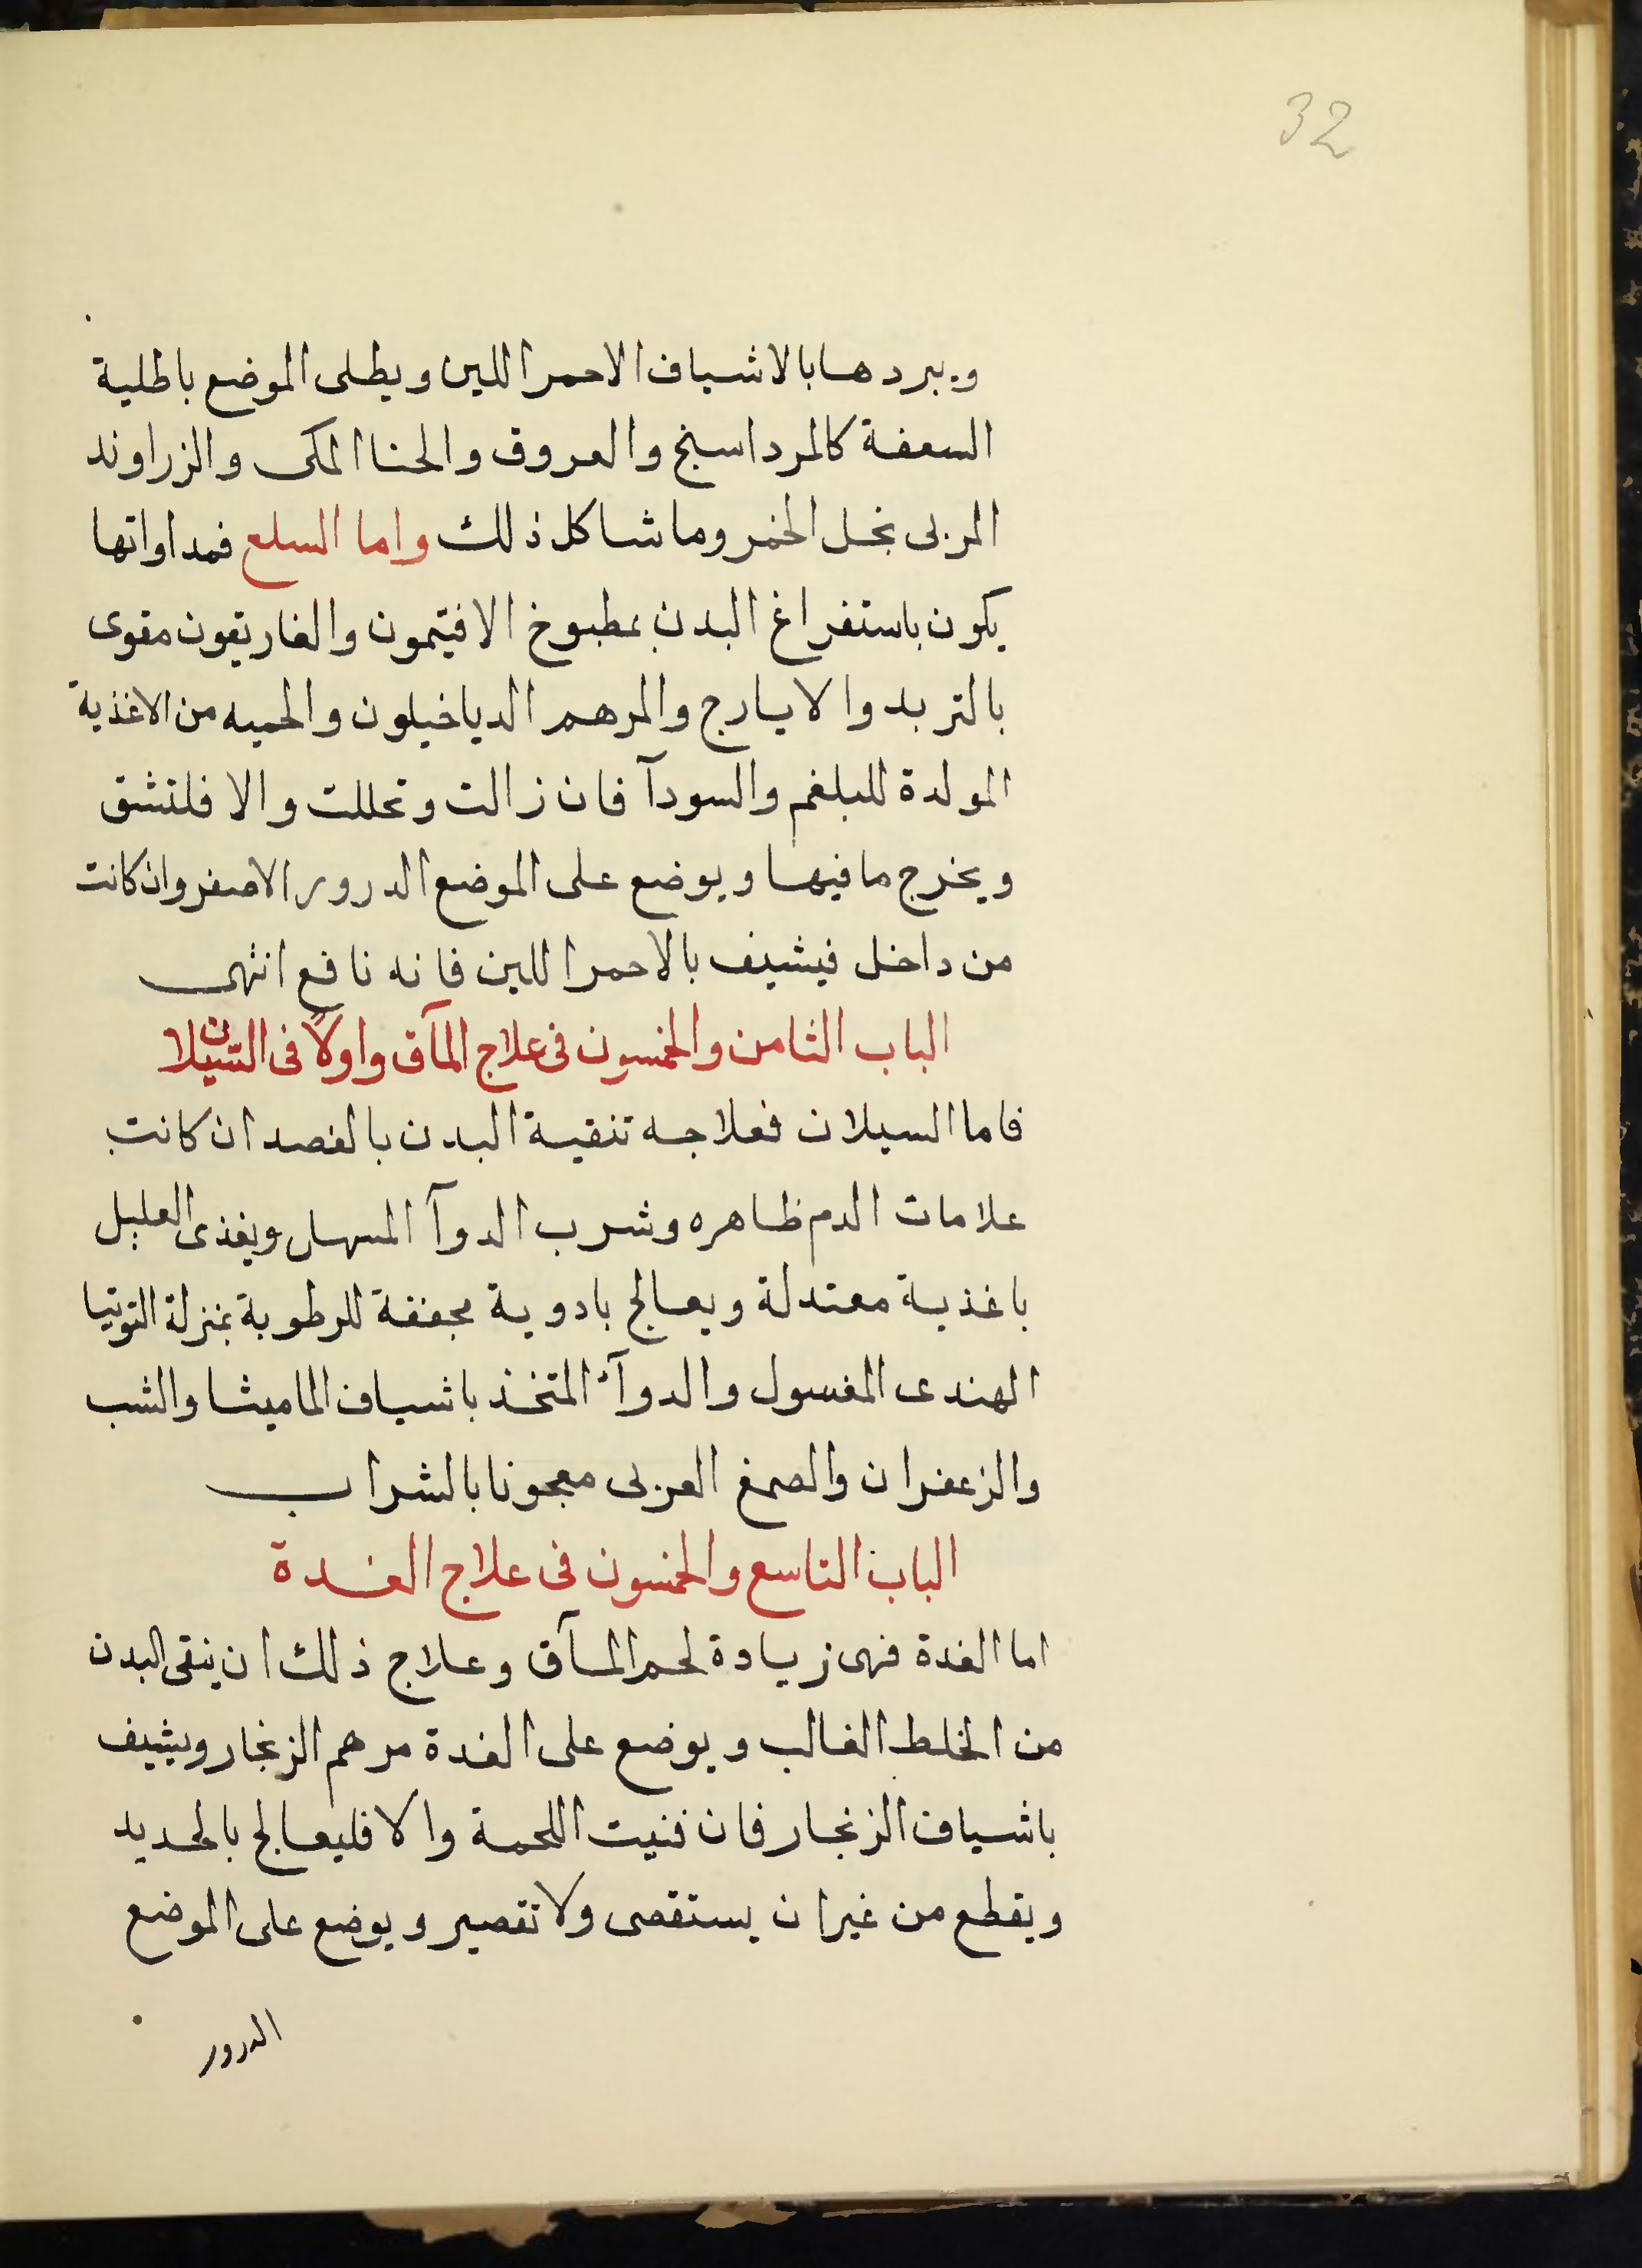 32
ويبردها بالاشياف الاحمر اللين ويطلى الموضع باطلية
السعفة كالمرداسنج والعروق والحنا المكى والزراوند
المربى بخل الخمر وما شاكل ذلك واما السلع فمداواتها
يكون باستفراغ البدن بمطبوخ الافتيمون والغاريقون مقوى
بالتربد والايارج والمرهم الدياخيلون والحميه من الاغذية
المولدة للبلغم والسودآ فان زالت وتحللت والا فلتشق
ويخرج ما فيها ويوضع على الموضع الدرور الاصفر وان كانت
من داخل فيشيف بالاحمر اللين فانه نافع انتهى
الباب الثامن والخمسون فى علاج المآق واولاً فى السيلان
فاما السيلان فعلاجه تنقية البدن بالفصد ان كانت
علامات الدم ظاهره وشرب الدوآ المسهل ويغذى العليل
باغذية معتدلة ويعالج بادوية مجففة للرطوبة بمنزلة التوتيا
الهندى المغسول والدوآء المتخذ باشياف الماميثا والشب
والزعفران والصمغ العربى معجونا بالشراب
الباب التاسع والخمسون فى علاج الغدة
اما الغدة فهى زيادة لحم المآق وعلاج ذلك ان ينقى البدن
من الخلط الغالب ويوضع على الغدة مرهم الزنجار ويشيف
باشياف الزنجار فان فنيت اللحمة والا فليعالج بالحديد
ويقطع من غير ان يستقصى ولا تقصير ويوضع على الموضع
الدرور